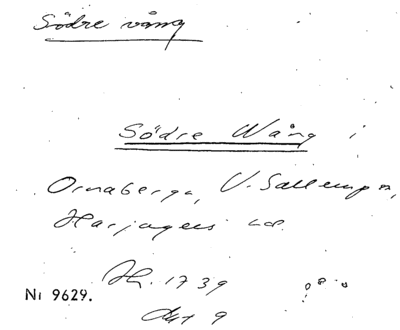 Södre vång
Södre Wång i
Ornaberga, V. Sallerup sn,
Harjagers hd.
Hr. 1739
Nr 9629.
Akt 9